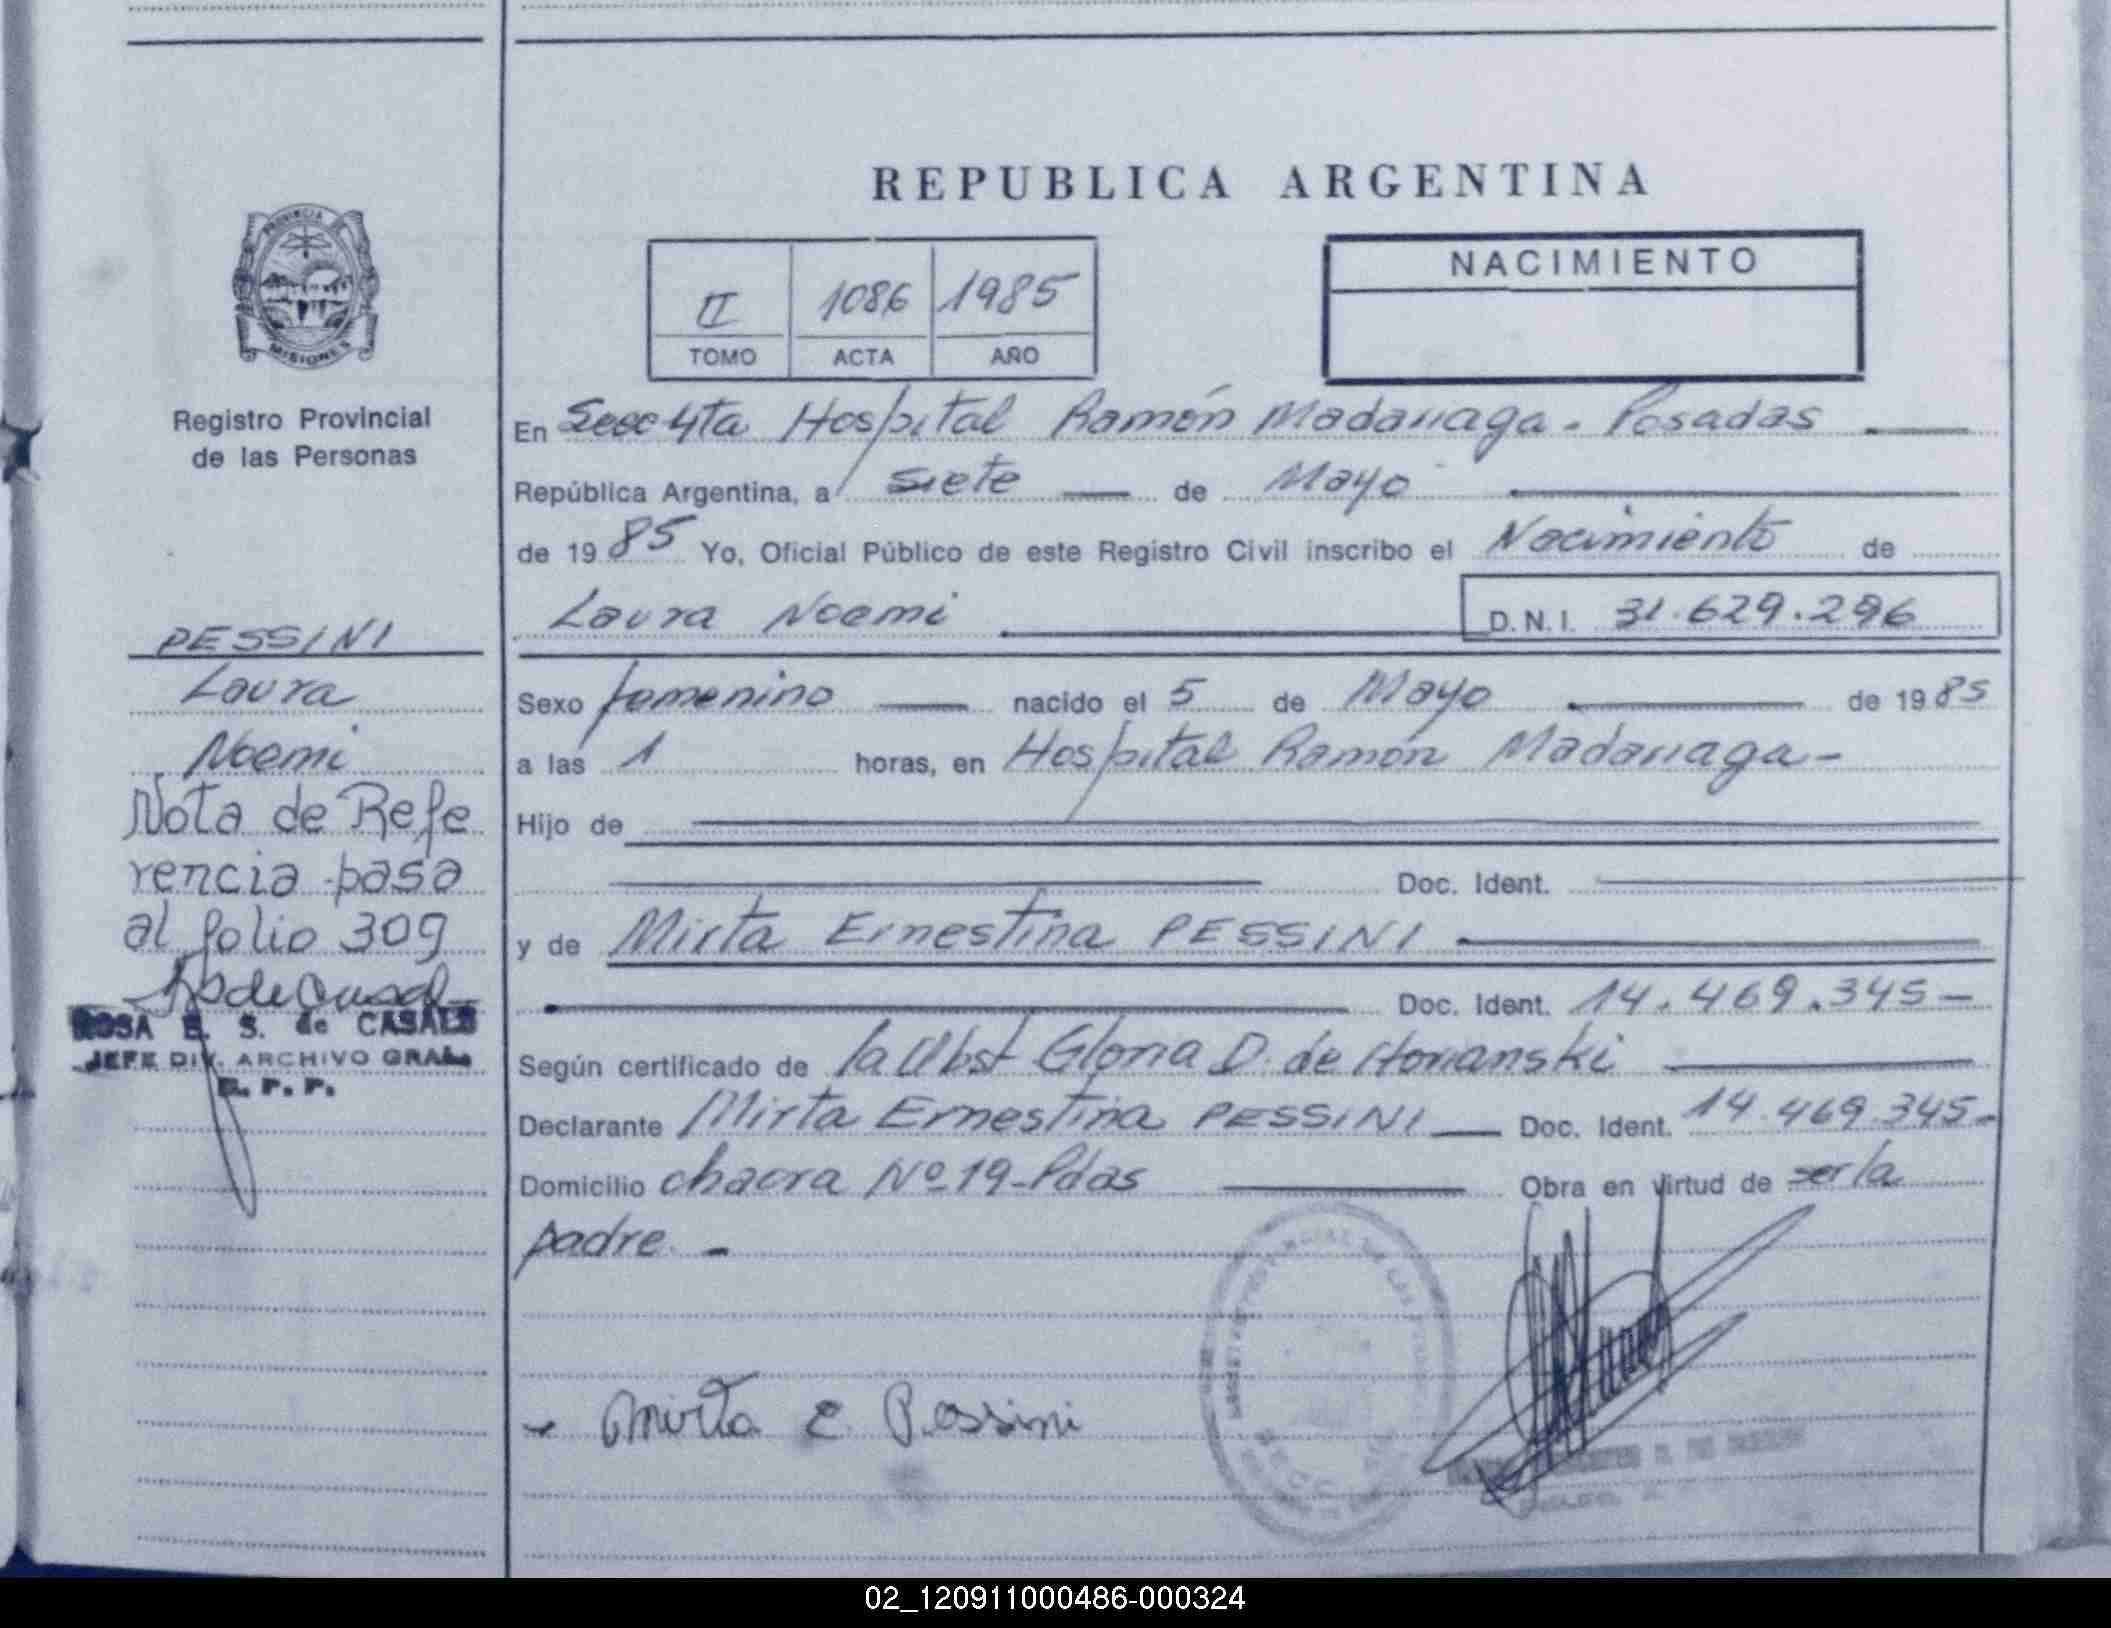 REPUBLICA ARGENTINA
PROVINCIA DE
MISIONES
Registro Provincial
de las Personas
II 1086 1985
TOMO ACTA AÑO
NACIMIENTO
En Secc 4ta Hospital Ramón Madariaga - Posadas
República Argentina, a siete de Mayo
de 1985 Yo, Oficial Público de este Registro Civil inscribo el Nacimiento de
Laura Noemi D.N.I. 31.629.296
PESSINI
Laura
Noemi
Nota de Refe
rencia pasa
al folio 309
ROSA E. S. de CASALS
JEFE DIV. ARCHIVO GRAL.
R. P. P.
Sexo femenino nacido el 5 de Mayo de 1985
a las 1 horas, en Hospital Ramón Madariaga-
Hijo de
Doc. Ident.
y de Mirta Ernestina PESSINI
Doc. Ident. 14.469.345-
Según certificado de la Obst Gloria D. de
Declarante Mirta Ernestina PESSINI Doc. Ident. 14.469.345-
Domicilio chacra Nº 19-Pdas Obra en virtud de ser la
padre. -
Mirta E. Pessini
02_120911000486-000324